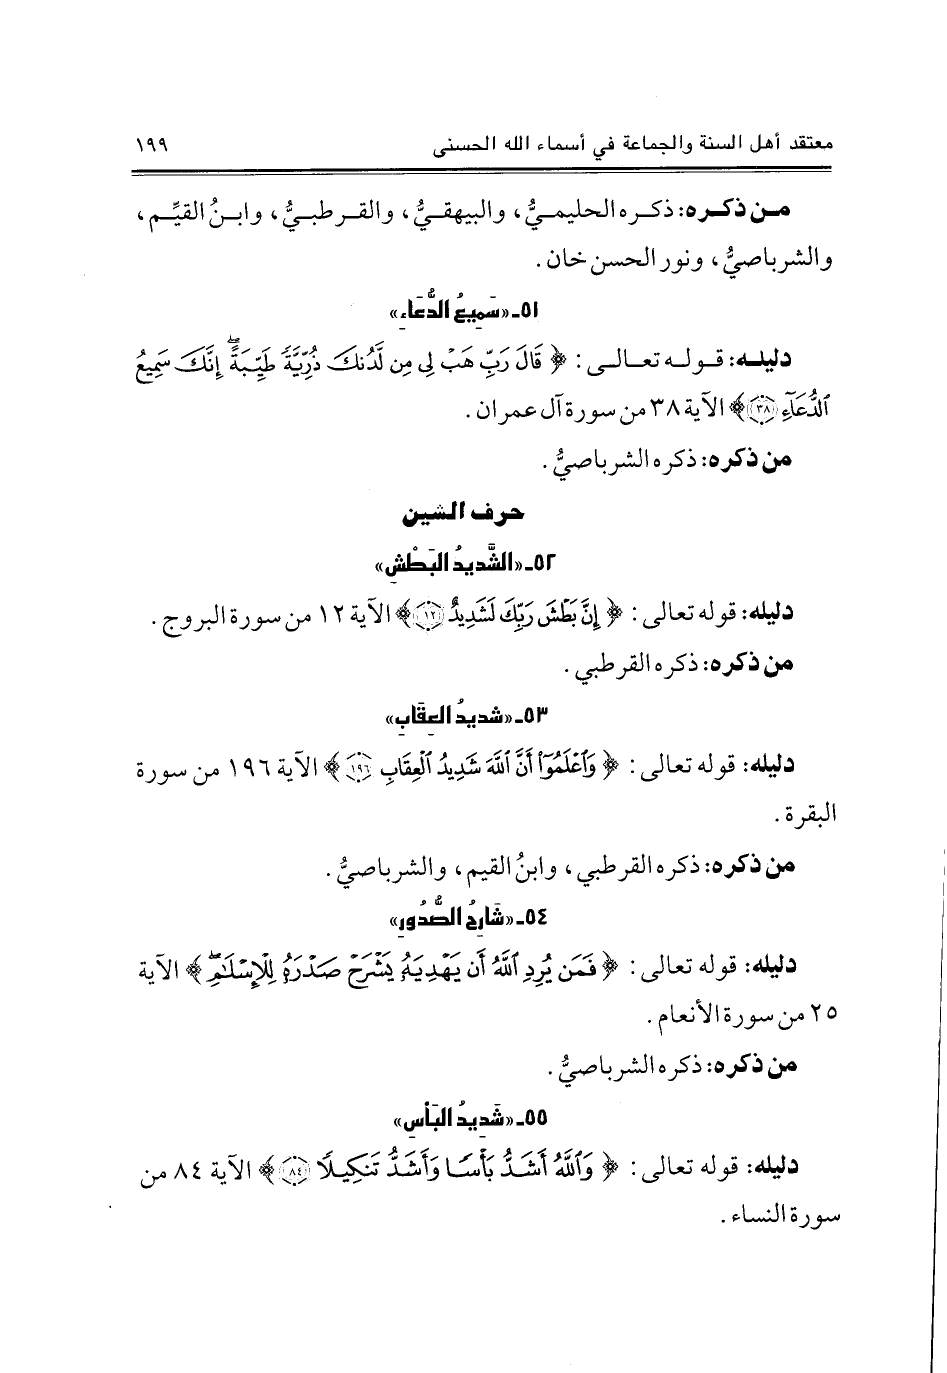 معتقد أهل السنة والجماعة في أسماء الله الحسنى ١٩٩
مـن ذكـره: ذكـره الحليمـيُّ، والبيهقـيُّ، والقـرطبـيُّ، وابـنُ القيِّـم،
والشرباصيُّ، ونور الحسن خان.
٥١ـ «سَمِيعُ الدُّعَاءِ»
دليلـه: قـولـه تعـالـى: ﴿ قَالَ رَبِّ هَبْ لِي مِن لَّدُنكَ ذُرِّيَّةً طَيِّبَةً ۖ إِنَّكَ سَمِيعُ
ٱلدُّعَآءِ ٣٨ ﴾ الآية ٣٨ من سورة آل عمران.
من ذكره: ذكره الشرباصيُّ.
حرف الشين
٥٢ـ «الشَّديدُ البَطْشِ»
دليله: قوله تعالى: ﴿ إِنَّ بَطْشَ رَبِّكَ لَشَدِيدٌ ١٢ ﴾ الآية ١٢ من سورة البروج.
من ذكره: ذكره القرطبي.
٥٣ـ «شديدُ العِقَابِ»
دليله: قوله تعالى: ﴿ وَٱعْلَمُوٓا۟ أَنَّ ٱللَّهَ شَدِيدُ ٱلْعِقَابِ ١٩٦ ﴾ الآية ١٩٦ من سورة
البقرة.
من ذكره: ذكره القرطبي، وابنُ القيم، والشرباصيُّ.
٥٤ـ «شَارِحُ الصُّدُورِ»
دليله: قوله تعالى: ﴿ فَمَن يُرِدِ ٱللَّهُ أَن يَهْدِيَهُۥ يَشْرَحْ صَدْرَهُۥ لِلْإِسْلَٰمِ ۖ ﴾ الآية
٢٥ من سورة الأنعام.
من ذكره: ذكره الشرباصيُّ.
٥٥ـ «شَديدُ البَأْسِ»
دليله: قوله تعالى: ﴿ وَٱللَّهُ أَشَدُّ بَأْسًا وَأَشَدُّ تَنكِيلًا ٨٤ ﴾ الآية ٨٤ من
سورة النساء.